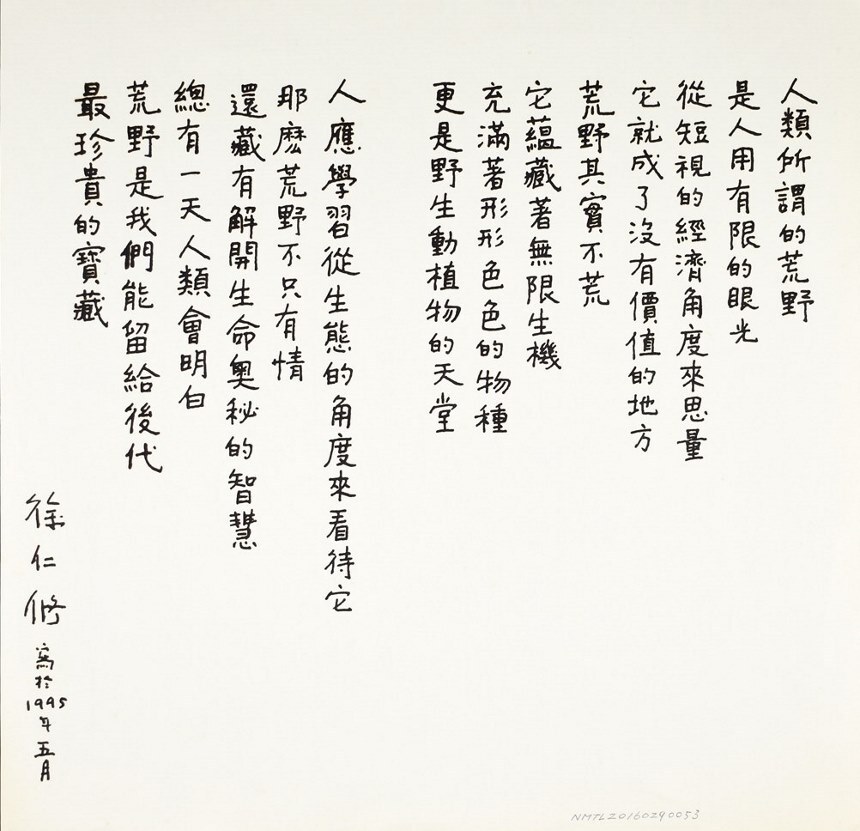 人類所謂的荒野
是人用有限的眼光
從短視的經濟角度來思量
它就成了沒有價值的地方
荒野其實不荒
它蘊藏著無限生機
充滿著形形色色的物種
更是野生動植物的天堂
人應學習從生態的角度來看待它
那麽荒野不只有情
還藏有解開生命奧秘的智慧
總有一天人類會明白
荒野是我們能留給後代
最珍貴的寶藏
徐仁修 寫於1995年五月
NMTL20160290053